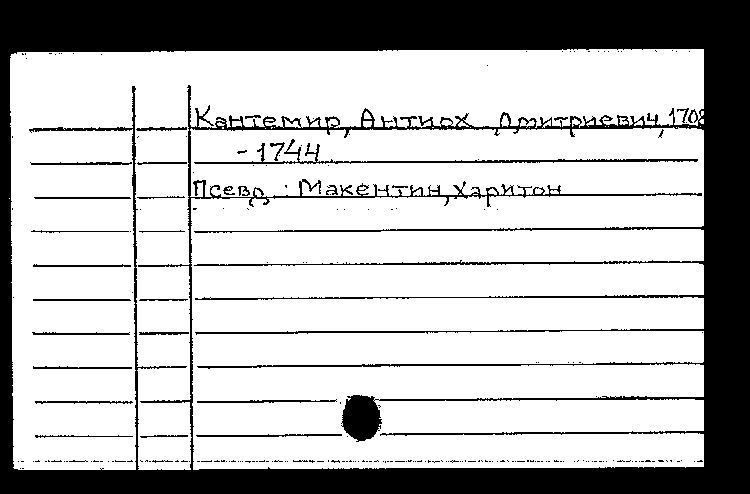 Кантемир, Антиох Дмитриевич, 1708
- 1744
Псевд.: Макентин, Харитон